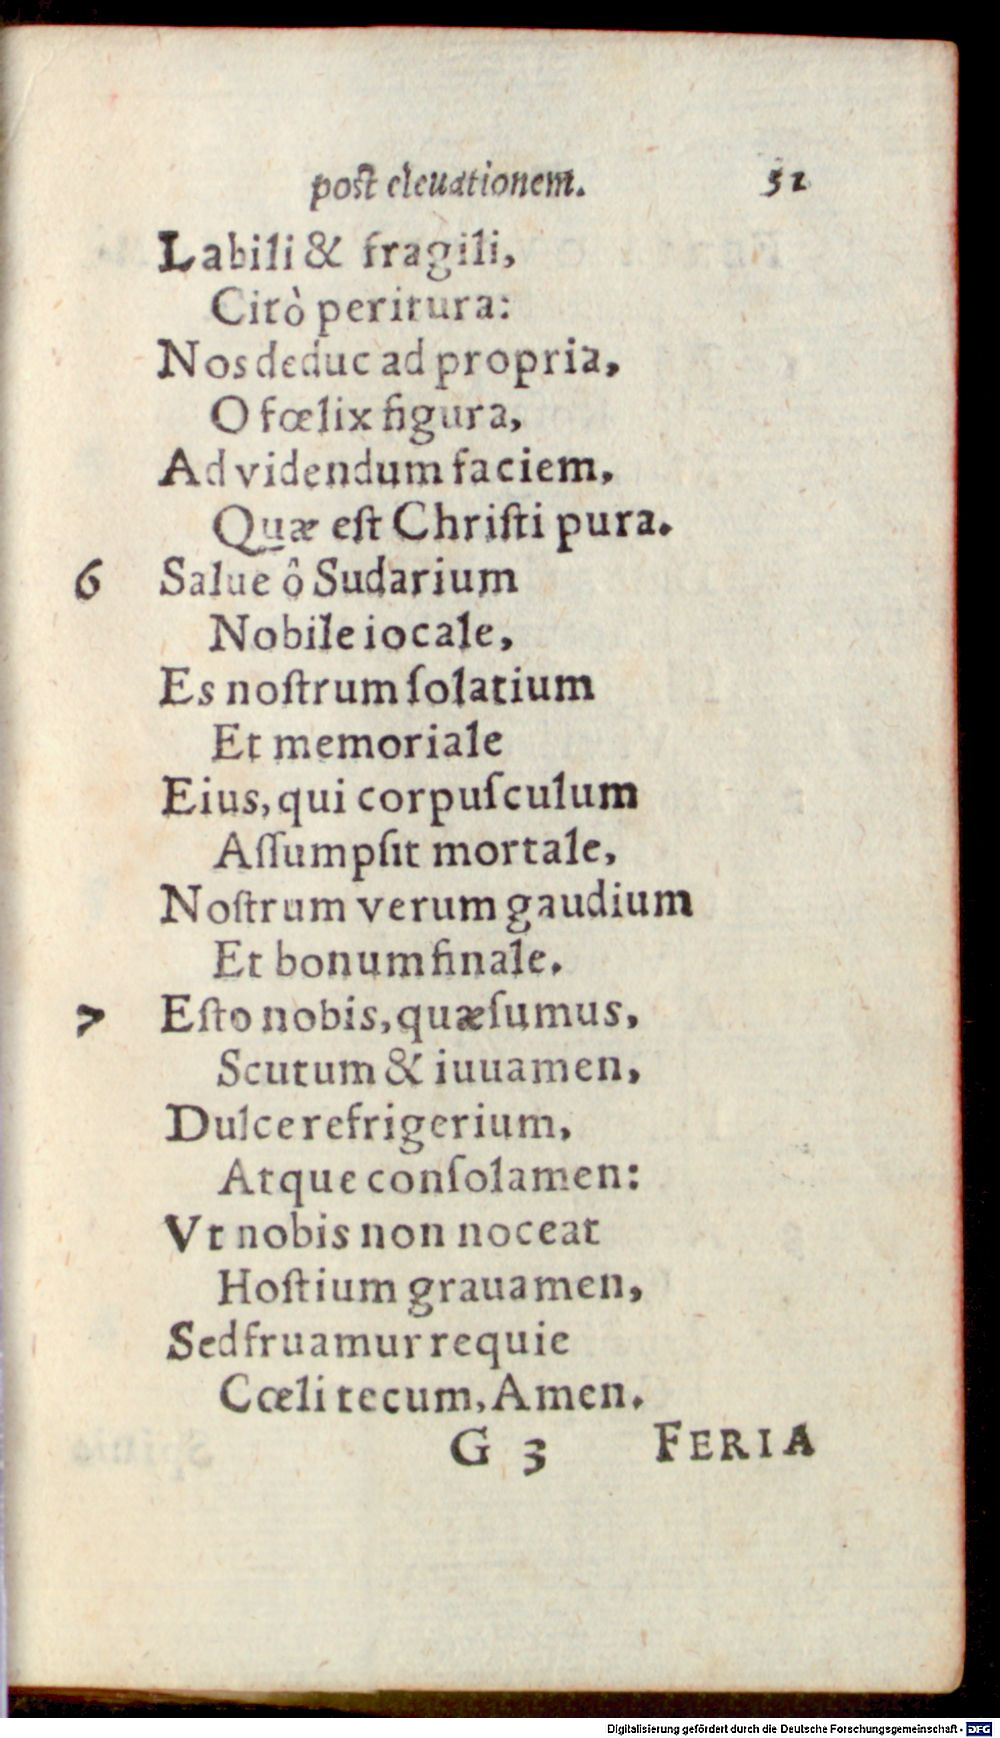 post eleuationem. 51
Labili & fragili,
Citò peritura:
Nos deduc ad propria,
O fœlix figura,
Ad videndum faciem,
Quæ est Christi pura.
6 Salue ô Sudarium
Nobile iocale,
Es nostrum solatium
Et memoriale
Eius, qui corpusculum
Assumpsit mortale,
Nostrum verum gaudium
Et bonum finale.
7 Esto nobis, quæsumus,
Scutum & iuuamen,
Dulce refrigerium,
Atque consolamen:
Vt nobis non noceat
Hostium grauamen,
Sed fruamur requie
Cœli tecum, Amen.
G 3 FERIA
Digitalisierung gefördert durch die Deutsche Forschungsgemeinschaft - DFG